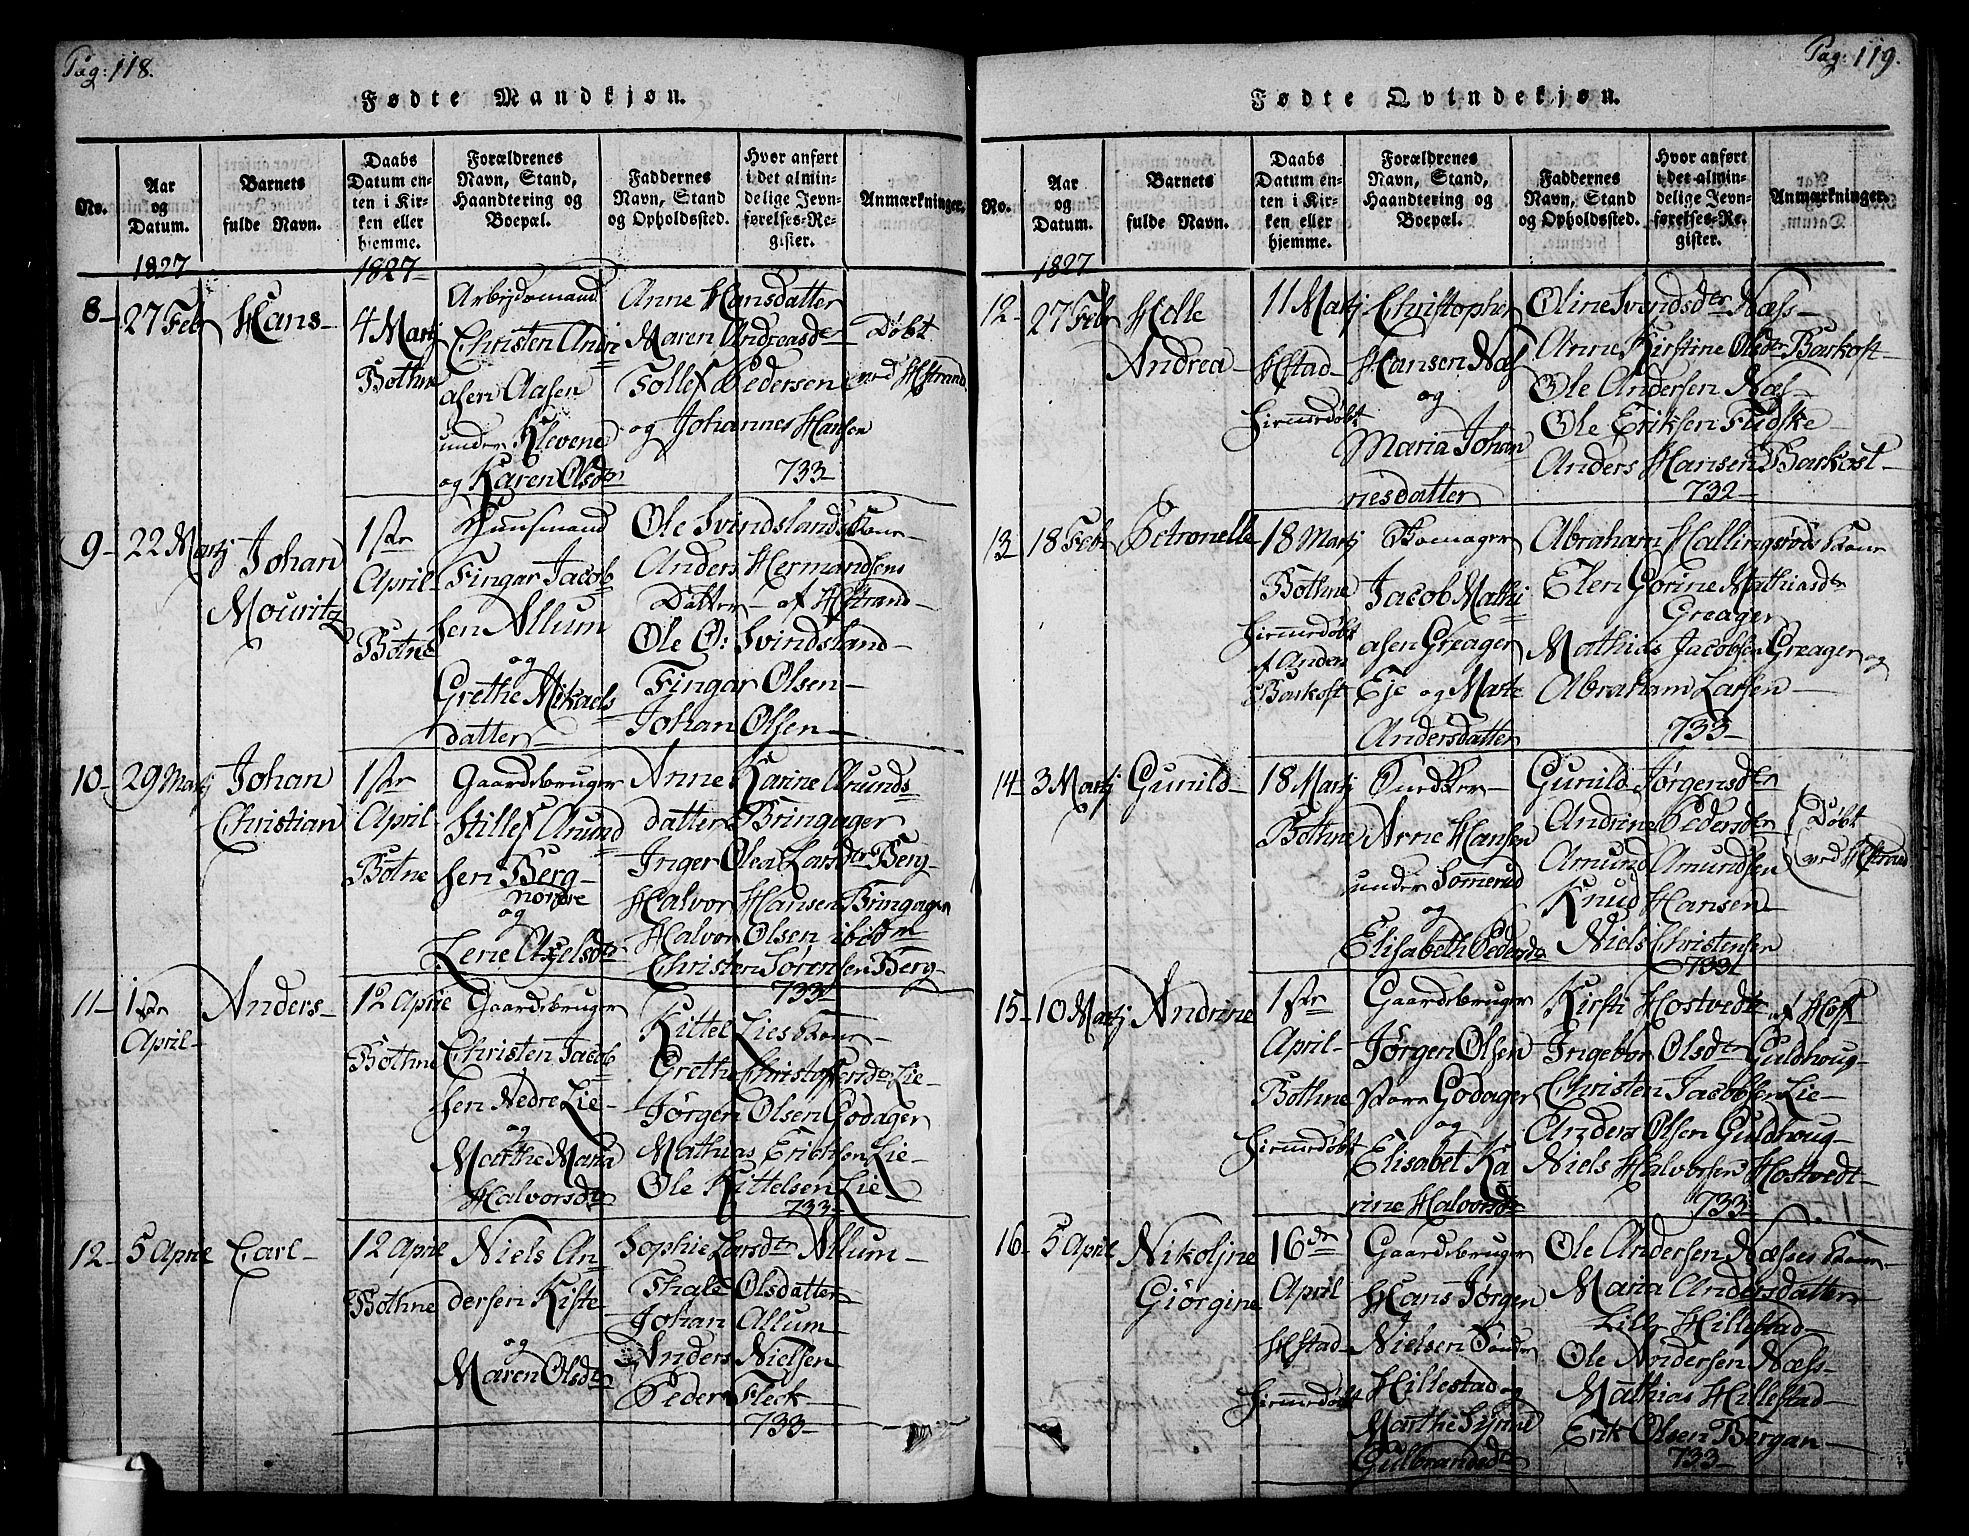 Pag: 118.
Fødte Mandkjøn.
No.
Aar og Datum.
Barnets fulde Navn.
Daabs Datum enten i Kirken eller hjemme.
Forældrenes Navn, Stand, Haandtering og Boepæl.
Faddernes Navn, Stand og Opholdssted.
Hvor anført i det almindelige Jevnførelses-Register.
Anmærkninger.
1827
1827
8-
27 Feb
Hans-
4 Martj
Bothne
Arbejdsmand
Christen Andri
asen Aasen
under Klevene
og Karen Olsdtr
Anne Hansdatter
Maren Andreasdr
Tollef Pedersen
og Johannes Hansen
733-
Døbt
ved Hstrand
9-
22 Martj
Johan
Mouritz
1ste
April
Botne
Huusmand
Fingar Jacob
sen Allum
og
Grethe Mikaels
datter-
Ole Svindslands Kone-
Anders Hermandsens
Datter- af Hstrand-
Ole O: Svindsland-
Fingar Olsen-
Johan Olsen-
10-
29 Martj
Johan
Christian
1ste
April-
Botne
Gaardsbruger
Stillef Amund
sen Berg-
nordre
og
Lene Axelsdtr
Anne Karine Amunds-
datter Bringager
Inger Olea Larsdtr Berg-
Halvor Hansen Bringager
Halvor Olsen ibidm
Christen Sørensen Berg-
733-
11-
1ste
April-
Anders-
12 Aprie
Bothne
Gaardsbruger
Christen Jacob
sen Nedre Lie-
og
Marthe Maria
Halvorsdtr
Kittel Lies Kone-
Grethe Christoffersdtr Lie-
Jørgen Olsen Godager
Mathias Eriksen Lie-
Ole Kittelsen Lie-
733-
12-
5 Aprie
Carl-
12 Aprie
Bothne
Niels An-
dersen Kiste-
og
Maren Olsdtr
Sophie Larsdtr Allum-
Thale Olsdatter
Johan Allum-
Anders Nielsen
Peder Fleck-
733-
Pag: 119.
Fødte Qvindekjøn.
No.
Aar og Datum.
Barnets fulde Navn.
Daabs Datum enten i Kirken eller hjemme.
Forældrenes Navn, Stand, Haandtering og Boepæl.
Faddernes Navn, Stand og Opholdssted.
Hvor anført i det almindelige Jevnførelses-Register.
Anmærkninger.
1827
12-
27 Feb
Helle
Andrea-
11 Martj
Hstad-
hiemmedøbt
Christopher
Hansen Næs
og
Maria Johan
nesdatter
Oline Svendsdtr Næss-
Anne Kirstine Olsdtr Barkost-
Ole Andersen Næss-
Ole Eriksen Fudske-
Anders Hansen Barkost-
732-
13-
18 Feb
Petronelle
18 Martj
Bothne
hiemmedøbt
af Anders
Barkost
Skomager
Jacob Mathi
asen Greager
Eje og Marte
Andersdatter
Abraham Hallingsrøs Kone
Elen Gorine Mathiasdtr
Greager
Mathias Jacobsen Greager og
Abraham Larsen-
733-
14-
3 Martj
Gunild-
18 Martj
Bothne
Snedker
Arne Hansen
under Sommerud
og
Elisabeth Pedersdtr
Gunild Jørgensdtr
Andrine Pedersdtr
Amund Amundsen
Knud Hansen-
Niels Christensen
733-
Døbt
ved Hstrand
15-
10 Martj
Andrine
1ste
April-
Bothne
hiemmedøbt
Gaardsbruger
Jørgen Olsen
Store Godager
og
Elisabet Ka
rine Halvorsdtr
Kirsti Hostvedt af Hoff-
Ingebor Olsdtr Guldhoug-
Christen Jacobsen Lie-
Anders Olsen Guldhoug-
Niels Halvorsen Hostvedt-
733-
16-
5 April
Nikoline
Giørgine
16de
April
Hstad-
hiemmedøbt
Gaardsbruger
Hans Jørgen
Nielsen Sønder
Hillestad og
Marthe Synne
Gulbrandsdtr
Ole Andersen Næsses Kone-
Maria Andersdatter
Lille Hillestad-
Ole Andersen Næss-
Mathias Hillestad-
Erik Olsen Bergan-
733-